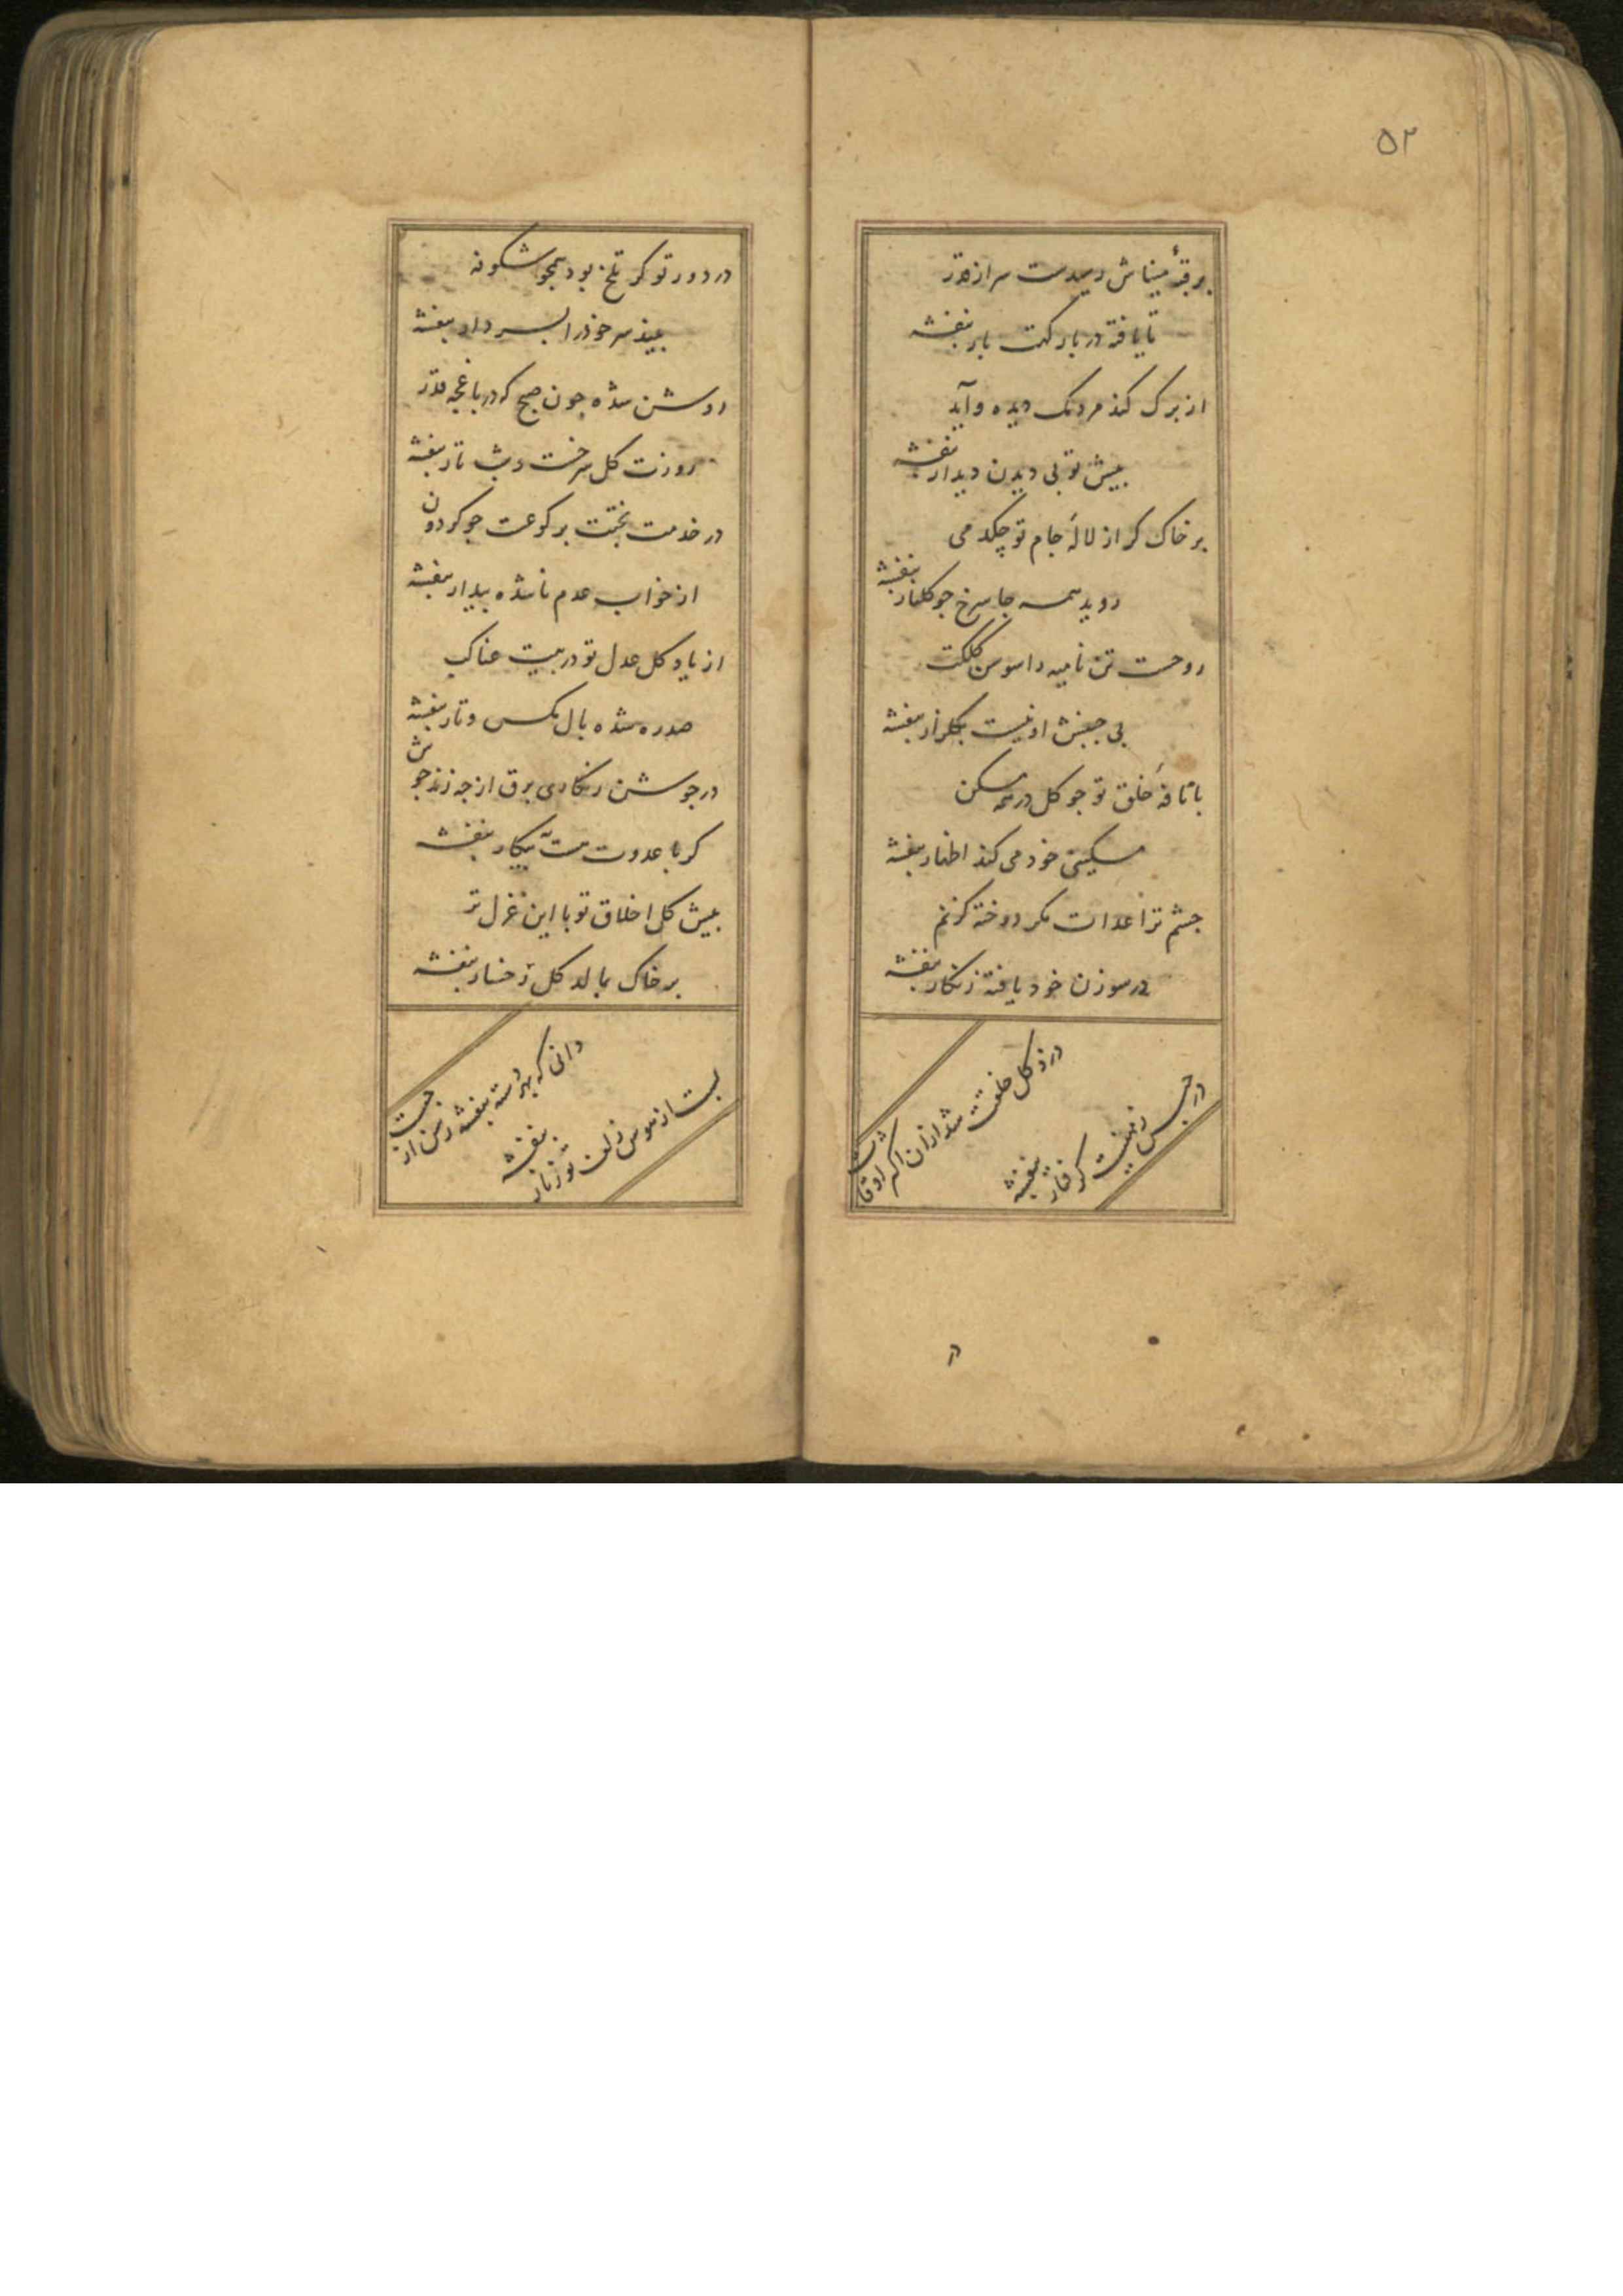 ۵۲
بر قبهٔ میناش رسیدست سر از قدر
تا یافته در بار کهت بار بنفشه
از برک کند مردمک دیده و آید
بیش تو بی دیدن دیدار بنفشه
بر خاک کر از لالهٔ جام تو چکد می
روید همه جا سرخ جو کلنار بنفشه
روحست تن نامیه را سوسن کلکت
بی جنبش او نیست بکلزار بنفشه
با نافهٔ خُلق تو جو کل در همه مسکن
مسکینی خود می کند اظهار بنفشه
جشم ترا عدات مکر دوخته کز نم
در سوزن خود یافته زنکار بنفشه
درذ کل خلقت شد ازان اکثر اوقات
در حبس زمینست کرفتار بنفشه
در
در دور تو کر تلخ بود همجو شکوفه
بیند سر خود را بسر دار بنفشه
روشن شده جون صبح که در باغجه قدر
روزت کل سرخست و شب تار بنفشه
در خدمت بختت برکوعست جو کردون
از خواب عدم ناشده بیدار بنفشه
از یاد کل عدل تو در بیت عناکب
صدره شده بال مکس و تار بنفشه
در جوشن زنکاری برق از جه زند جوش
کر با عدوت نیست به بیکار بنفشه
بیش کل اخلاق تو با این غزل تر
بر خاک بمالد کل رخسار بنفشه
دانی که بهر دسته بنفشه رسن از جیست
بست از هوس زلف تو زنار بنفشه